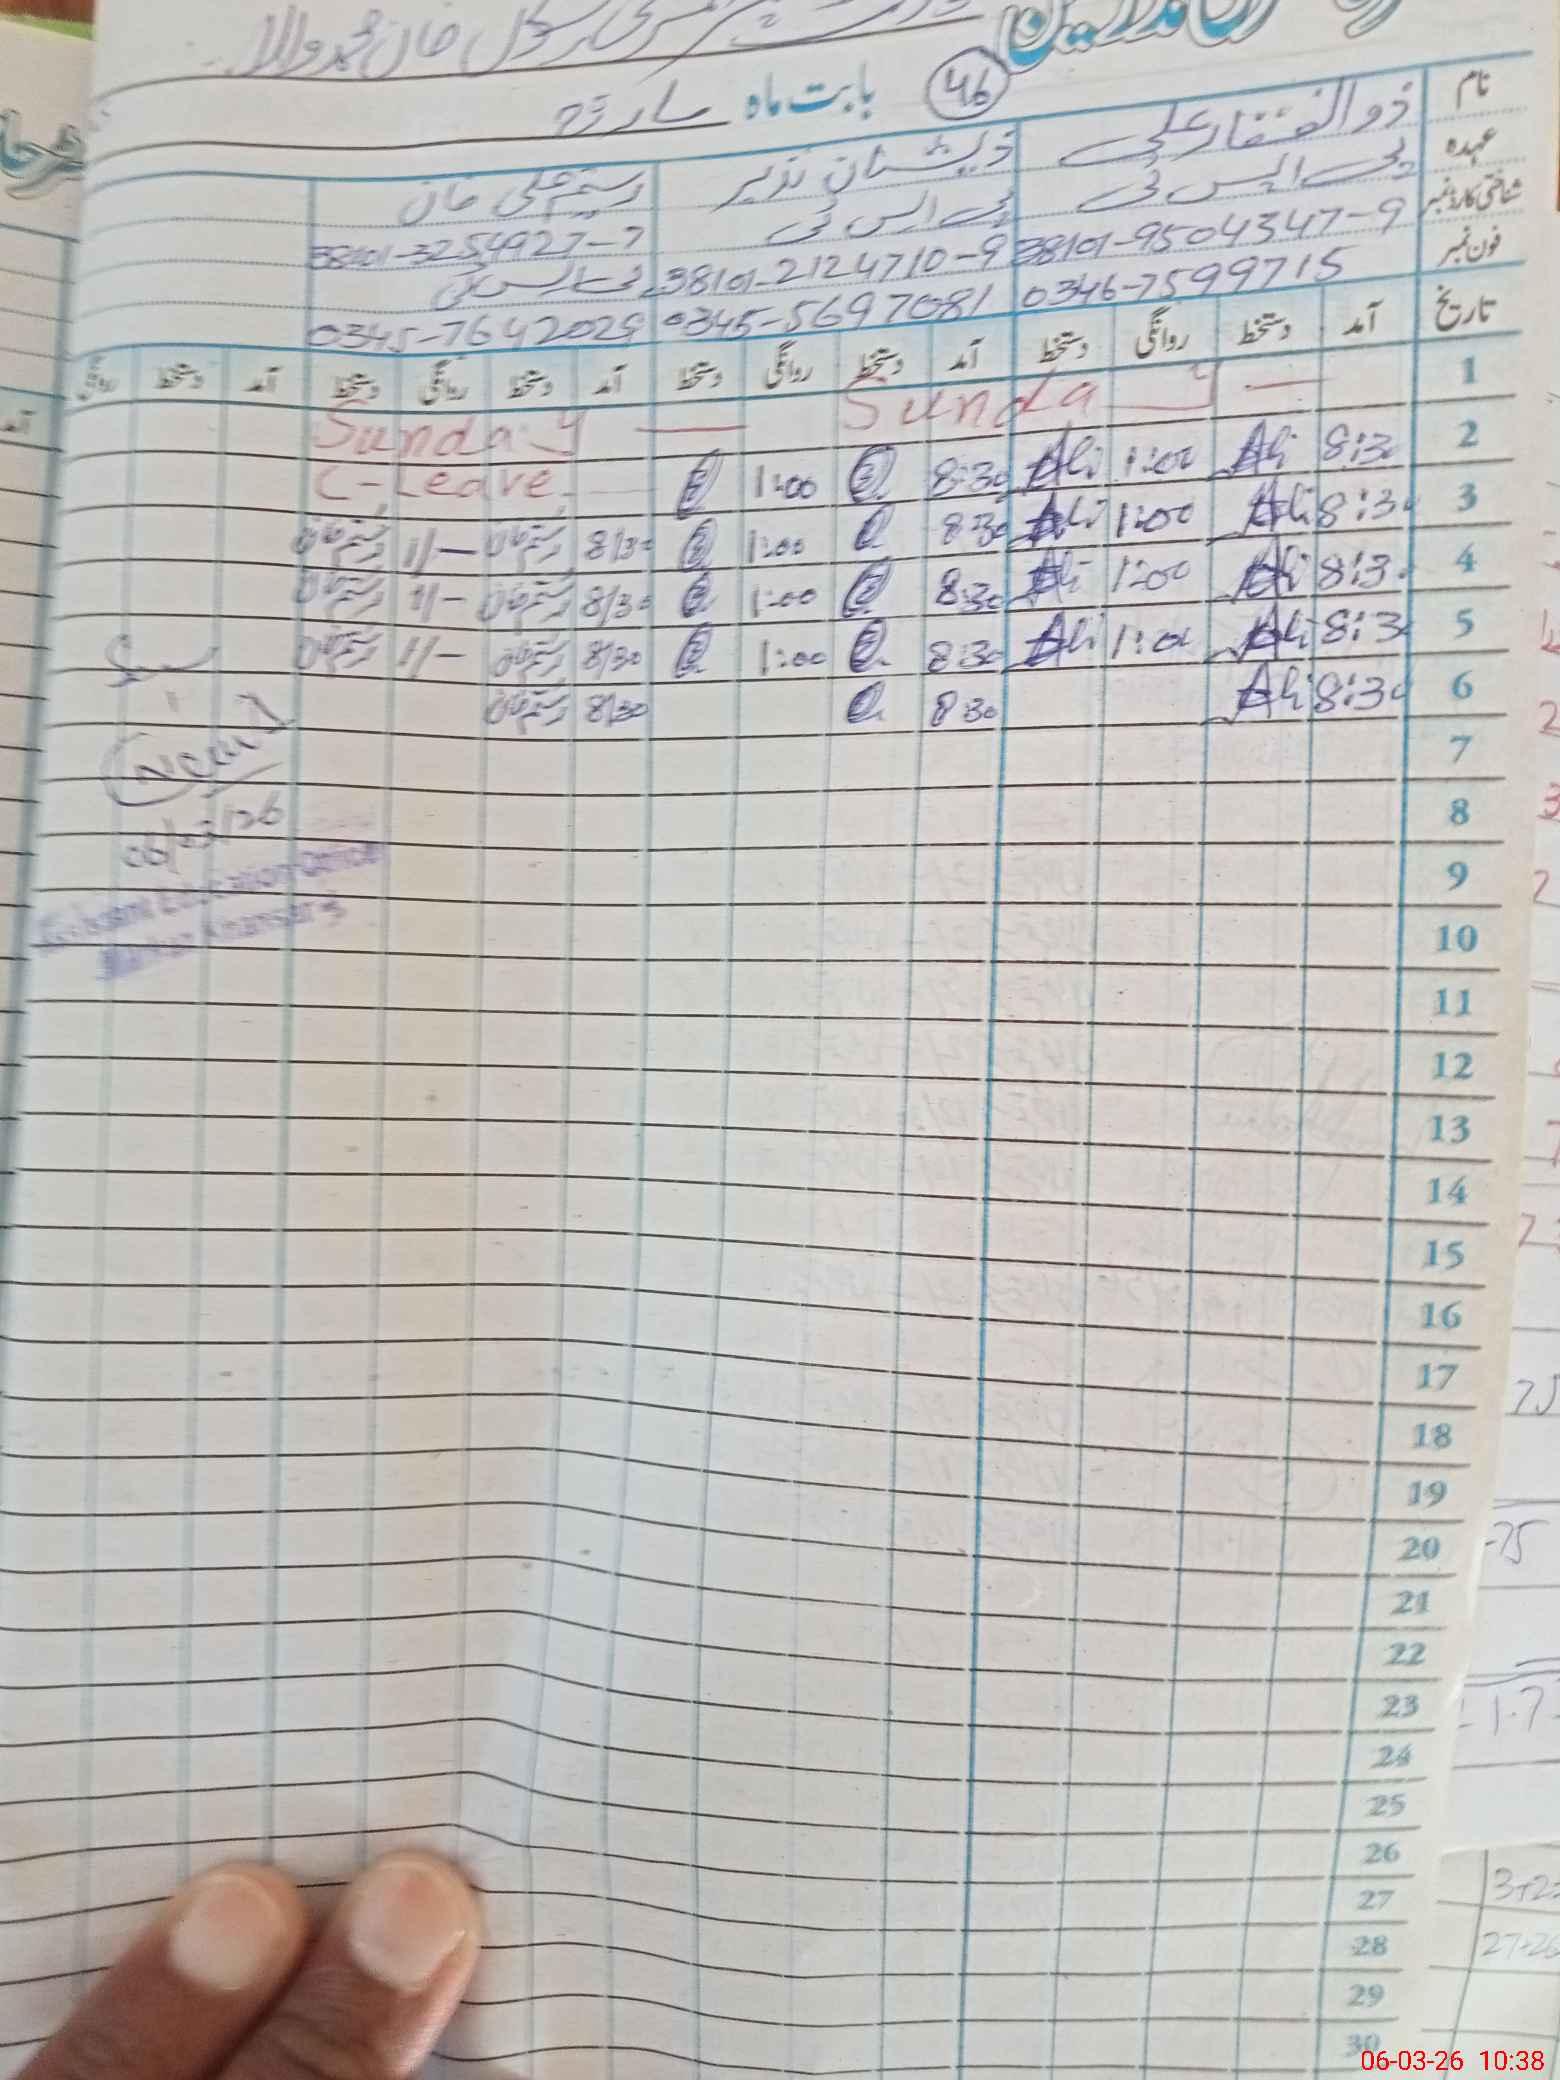 بابت ماہ مارچ 46
نام ذوالفقار علی ذیشان نذیر رستم علی خان
عہدہ پی ایس ٹی پی ایس ٹی
شناختی کارڈ نمبر 38101-9504347-9 38101-2124710-9 38101-3254927-7
پی ایس ٹی
فون نمبر 0346-7599715 0345-5697081 0345-7642029
تاریخ آمد دستخط روانگی دستخط آمد دستخط روانگی دستخط آمد دستخط روانگی دستخط آمد دستخط روانگی
1 Sunday — Sunday —
2 8:30 Ali 1:00 Ali 8:30 1:00 C-Leave
3 8:30 Ali 1:00 Ali 8:30 1:00 8/30 رستم خان 1/— رستم خان
4 8:30 Ali 1:00 Ali 8:30 1:00 8/30 رستم خان 1/— رستم خان
5 8:30 Ali 1:00 Ali 8:30 1:00 8/30 رستم خان 1/— رستم خان
6 8:30 Ali 8:30 8/30 رستم خان
7
8
06/03/26
9
Education Officer
10
11
12
13
14
15
16
17
18
19
20
21
22
23
24
25
26
27
28
29
30
75
-75
1.7
3+2
27+26
06-03-26 10:38